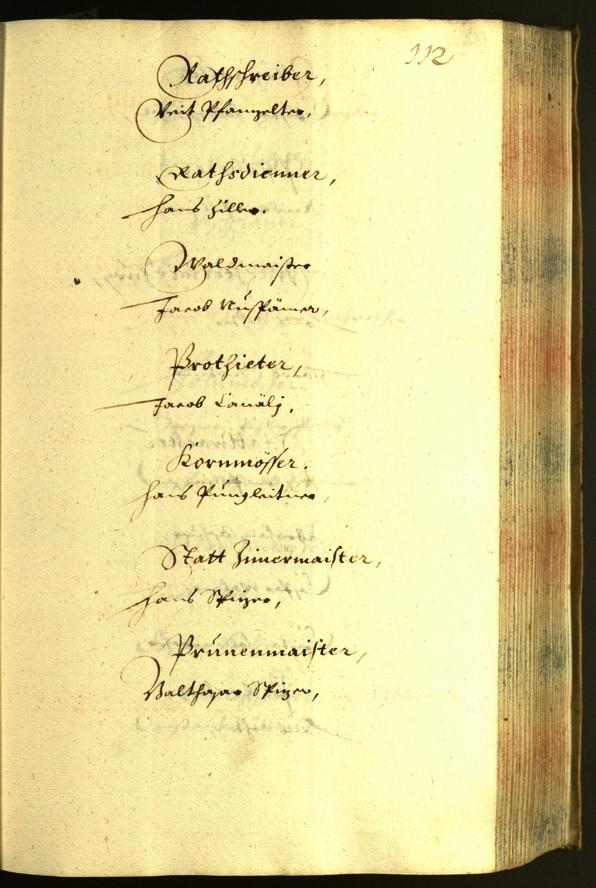 112
Rathschreiber,
Veit Pfanzelter,
Rathsdienner,
Hans Ziller.
Waldmaister
Jacob Nußpämer,
Prothieter,
Jacob Canälj,
Kornmösser.
Hans Pungleitner,
Statt Zimermaister,
Hans Spizer,
Prünenmaister,
Balthasar Spizer,